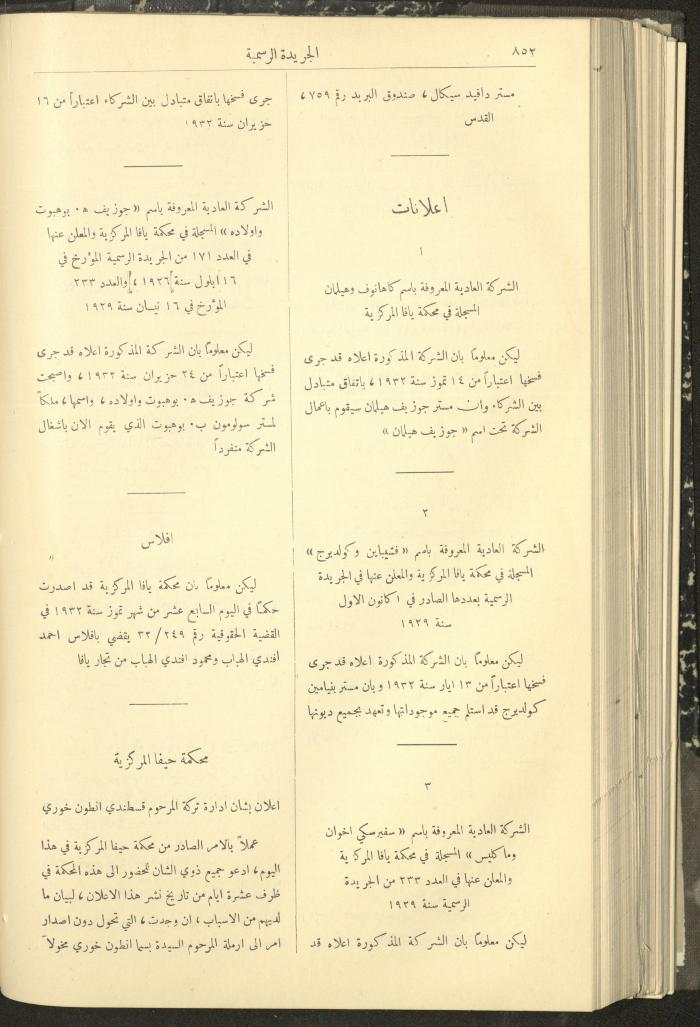 ٨٥٢
الجريدة الرسمية
مستر دافيد سيكال ، صندوق البريد رقم ٧٥٩ ،
القدس
اعلانات
١
الشركة العادية المعروفة باسم كاهانوف وهيلمان
المسجلة في محكمة يافا المركزية
ليكن معلومًا بان الشركة المذكورة اعلاه قد جرى
فسخها اعتباراً من ١٤ تموز سنة ١٩٣٢ ، باتفاق متبادل
بين الشركاء وان مستر جوزيف هيلمان سيقوم باعمال
الشركة تحت اسم « جوزيف هيلمان »
٢
الشركة العادية المعروفة باسم « فشيباين وكولدبرج »
المسجلة في محكمة يافا المركزية والمعلن عنها في الجريدة
الرسمية بعددها الصادر في ١ كانون الاول
سنة ١٩٢٩
ليكن معلومًا بان الشركة المذكورة اعلاه قد جرى
فسخها اعتباراً من ١٣ ايار سنة ١٩٣٢ وبان مستر بنيامين
كولدبرج قد استلم جميع موجوداتها وتعهد بجميع ديونها
٣
الشركة العادية المعروفة باسم « سفيرسكي اخوان
وماكليس » المسجلة في محكمة يافا المركزية
والمعلن عنها في العدد ٢٣٣ من الجريدة
الرسمية سنة ١٩٢٩
ليكن معلومًا بان الشركة المذكورة اعلاه قد
جرى فسخها باتفاق متبادل بين الشركاء اعتباراً من ١٦
حزيران سنة ١٩٣٢
الشركة العادية المعروفة باسم « جوزيف ه . بوهبوت
واولاده » المسجلة في محكمة يافا المركزية والمعلن عنها
في العدد ١٧١ من الجريدة الرسمية المؤرخ في
١٦ ايلول سنة ١٩٢٦ ، والعدد ٢٣٣
المؤرخ في ١٦ نيسان سنة ١٩٢٩
ليكن معلومًا بان الشركة المذكورة اعلاه قد جرى
فسخها اعتباراً من ٢٤ حزيران سنة ١٩٣٢ ، واصبحت
شركة جوزيف ه . بوهبوت واولاده ، واسمها ، ملكاً
لمستر سولومون ب . بوهبوت الذي يقوم الان باشغال
الشركة منفرداً
افلاس
ليكن معلومًا بان محكمة يافا المركزية قد اصدرت
حكمًا في اليوم السابع عشر من شهر تموز سنة ١٩٣٢ في
القضية الحقوقية رقم ٣٢/٢٤٩ يقضي بافلاس احمد
افندي الهباب ومحمود افندي الهباب من تجار يافا
محكمة حيفا المركزية
اعلان بشان ادارة تركة المرحوم قسطندي انطون خوري
عملاً بالامر الصادر من محكمة حيفا المركزية في هذا
اليوم ، ادعو جميع ذوي الشان للحضور الى هذه المحكمة في
ظرف عشرة ايام من تاريخ نشر هذا الاعلان ، لبيان ما
لديهم من الاسباب ، ان وجدت ، التي تحول دون اصدار
امر الى ارملة المرحوم السيدة بسما انطون خوري مخولاً